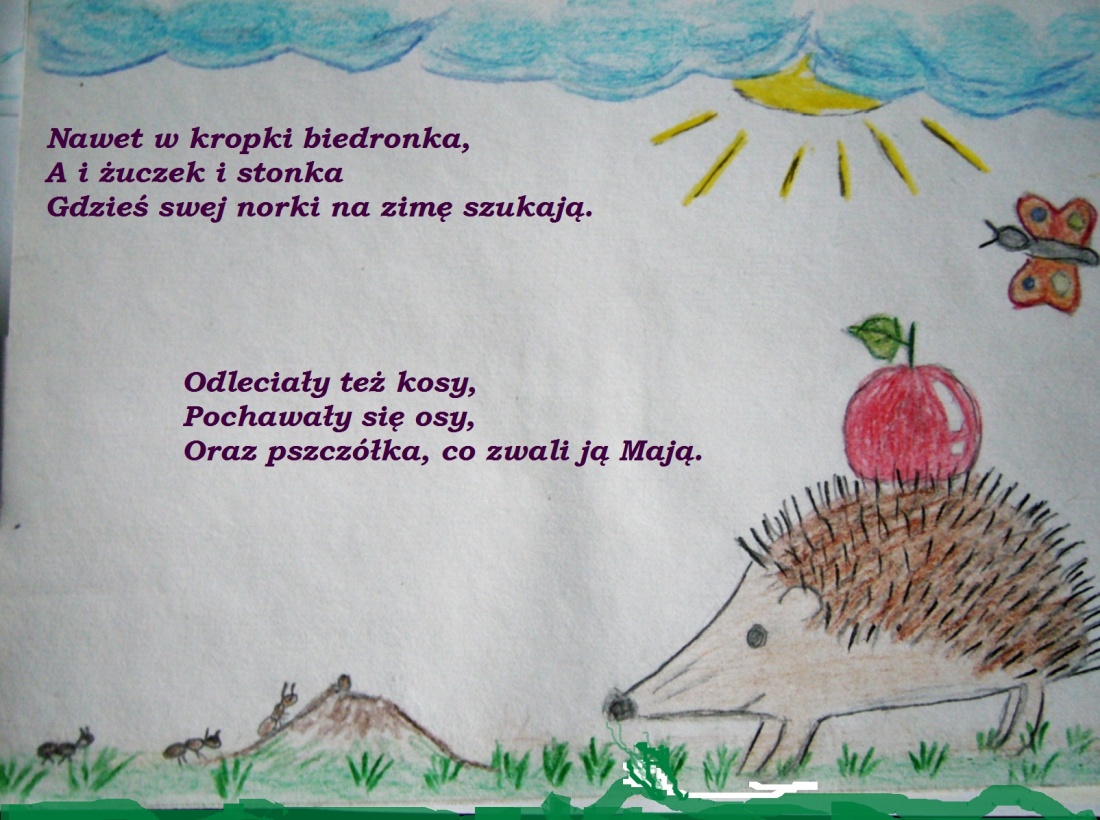 Nawet w kropki biedronka,
A i żuczek i stonka
Gdzieś swej norki na zimę szukają.
Odleciały też kosy,
Pochawały się osy,
Oraz pszczółka, co zwali ją Mają.